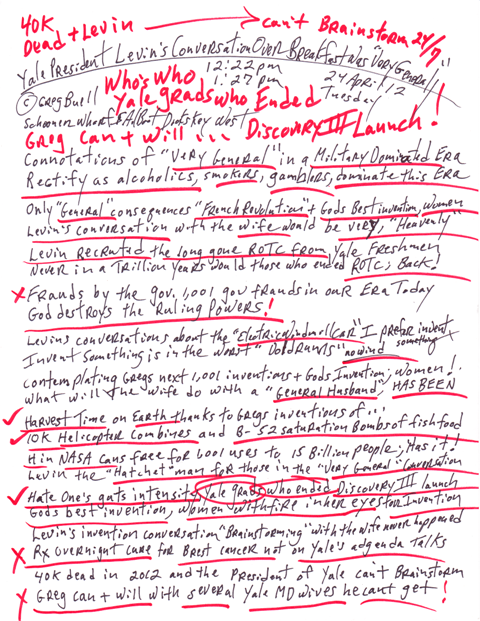 40K can't Brainstorm 24/7
Dead + Levin
Yale President Levin's Conversation Over Breakfast Was "Very General"!
12:22 pm
Who's Who 1:27 pm 24 April 12
© Greg Buell Yale grads who Ended Tuesday
Schooner Wharf & Albert Dr. Key West
Greg Can + Will ... Discovery III Launch!
Connotations of "Very General" in a Military Dominated Era
Rectify as alcoholics, smokers, gamblers, dominate this Era
Only "General" consequences "French Revolution" + Gods Best invention, women
Levin's conversation with the wife would be very, "Heavenly"
Levin Recruited the long gone ROTC from Yale Freshmen
Never in a Trillion years would those who ended ROTC, Back!
x Frauds by the gov. 1,001 gov frauds in our Era Today
God destroys the Ruling Powers!
Levins conversations about the "ElectricWindmillCar" I prefer invent something
Invent something is in the worst "Doldrums" nowind
contemplating Gregs next 1,001 inventions + Gods Invention, women!
what will the wife do with a "General Husband", HAS BEEN
✓ Harvest Time on Earth thanks to Gregs inventions of ...
✓ 10K Helicopter Combines and B-52 saturation Bombs of fish food
H in NASA Cans free for 1,001 uses to 15 Billion people, Has it!
Levin the "Hatchet" man for those in the "Very General" Conversation
✓ Hate One's guts intensity Yale grads who ended Discovery III launch
Gods best invention, women with fire in her eyes for Invention
Levin's invention conversation "Brainstorming" with the wife never happened
x Rx overnight cure for Brest cancer not on Yale's adgenda Talks
40K dead in 2012 and the president of Yale can't Brainstorm
x Greg can + will with several Yale MD wives he can't get!